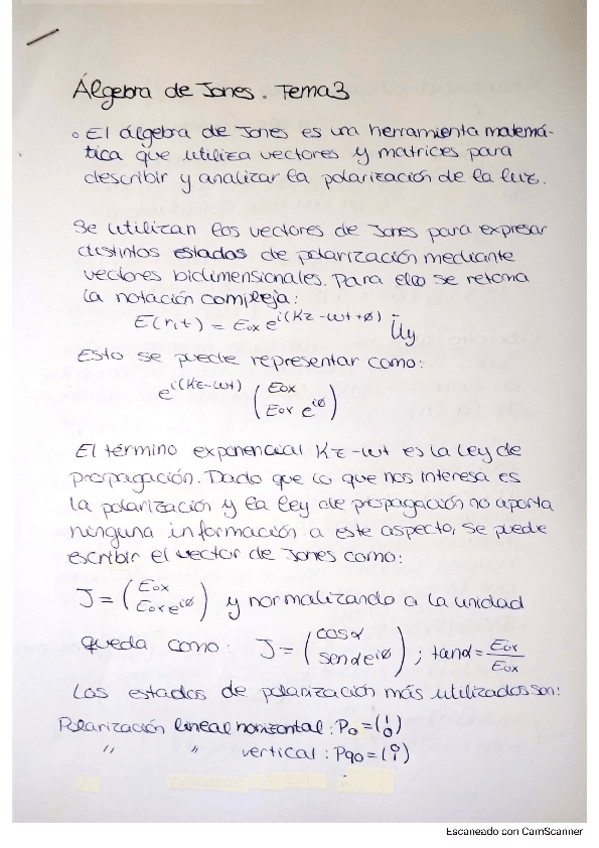 Álgebra de Jones. Tema 3
o El álgebra de Jones es una herramienta matemá-
tica que utiliza vectores y matrices para
describir y analizar la polarización de la luz.
Se utilizan los vectores de Jones para expresar
distintos estados de polarización mediante
vectores bidimensionales. Para ello se retoma
la notación compleja:
E(r,t) = E₀ₓ e^i(Kz-wt+ø) ūy
Esto se puede representar como:
e^i(Kz-wt) (E₀ₓ
E₀ᵧ e^iø)
El término exponencial Kz-wt es la ley de
propagación. Dado que lo que nos interesa es
la polarización y la ley de propagación no aporta
ninguna información a este aspecto, se puede
escribir el vector de Jones como:
J = (E₀ₓ
E₀ᵧ e^iø) y normalizando a la unidad
queda como: J = (cosα
senα e^iø) ; tanα = E₀ᵧ/E₀ₓ
Los estados de polarización más utilizados son:
Polarización lineal horizontal: P₀ = (1 0)
" " vertical: P₉₀ = (0 1)
Escaneado con CamScanner